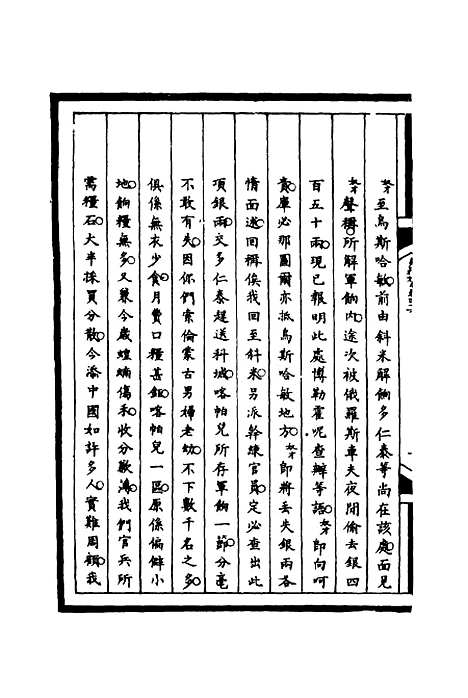 奴才至烏斯哈敏前由斜米解餉多仁泰等尚在該處面見
奴才聲稱所解軍餉內途次被俄羅斯車夫夜間偷去銀四
百五十兩現已報明此處博勒霍呢查辦等語奴才即向呵
賚庫必那圖爾亦抵烏斯哈敏地方奴才即將丟失銀兩各
情面述回稱俟我回至斜米另派幹練官員定必查出此
項銀兩交多仁泰趕送科城喀帕兒所存軍餉一節分毫
不敢有失因你們索倫蒙古男婦老幼不下數千名之多
俱係無衣少食月費口糧甚鉅喀帕兒一區原係偏僻小
地餉糧無多又兼今歲蝗蝻傷禾收分歉薄我們官兵所
需糧石大半採買分散今添中國如許多人實難周顧我